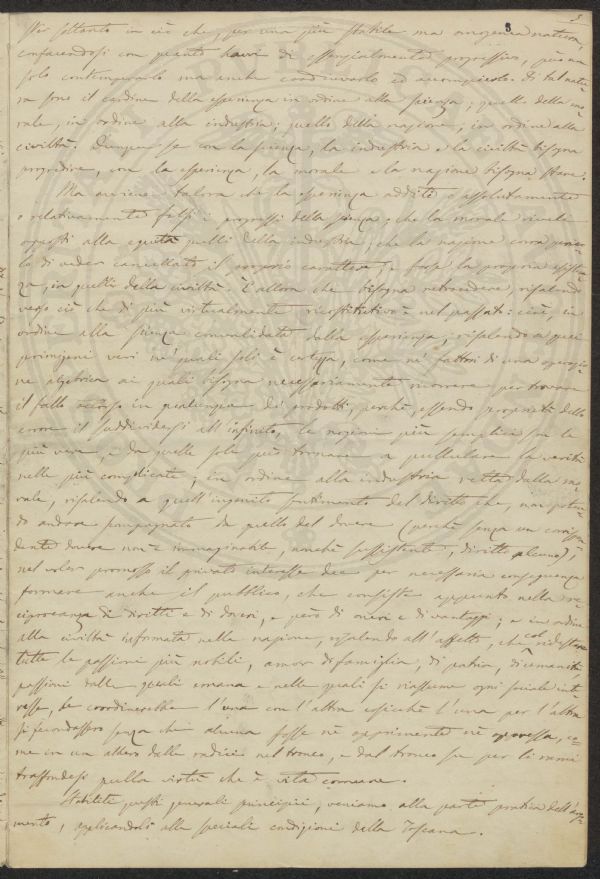 3
3
Per soltanto in ciò che, per una più stabile ma omogenea natura,
confacendosi con quanto havvi di essenzialmente progressivo, può non
solo contemperarlo ma anche coadiuvarlo ed accompirlo. Di tal natu
ra sono il cardine della esperienza in ordine alla scienza; quello della mo
rale, in ordine alla industria; quello della nazione, in ordine alla
civiltà. Dunque se con la scienza, la industria e la civiltà bisogna
progredire, con la esperienza, la morale e la nazione bisogna stare.
Ma avviene talora che la esperienza additi o assolutamente
o relativamente falsi i progressi della scienza, che la morale riveli
opposti alla equità quelli della industria, che la nazione corra perico
lo di veder cancellato il proprio carattere, e forse la propria esisten
za, in quelli della civiltà. È allora che bisogna retrocedere risalendo
verso ciò che di più virtualmente ricostitutivo è nel passato: cioè, in
ordine alla scienza convalidata dalla esperienza, risalendo a quei
primigeni veri ne' quali soli è certezza, come ne' fattori di una operazio
ne algebrica ai quali bisogna necessariamente ricorrere per trovare
il fallo occorso in qualunque dei prodotti, perchè, essendo proprietà dello
errore il suddividersi all'infinito, le nozioni più semplici son le
più vere, e da quelle sole può tornare a pullulare la verità
nelle più complicate; in ordine alla industria retta dalla mo
rale, risalendo a quell'ingenito sentimento del diritto che, non poten
do andare scompagnato da quello del dovere (perchè senza un corrispon
dente dovere non è immaginabile, nonchè sussistente, diritto alcuno),
nel voler promosso il privato interesse dee per necessaria conseguenza
formare anche il pubblico, che consiste appunto nella re
ciprocanza di diritti e di doveri, e però di oneri e di vantaggi; e in ordine
alla civiltà informata nelle nazione, risalendo all'affetto, che col ridestare
tutte le passioni più nobili, amor di famiglia, di patria, di umanità,
passioni dalle quali emana e nelle quali si riassume ogni sociale inte
resse, le coordinerebbe l'una con l'altra cosicchè l'una per l'altra
si fecondassero senza che alcuna fosse nè opprimente nè oppressa, co
me in un albero dalle radici nel tronco, e dal tronco su per li rami
trasfondesi quella virtù che è vita comune.
Stabiliti questi generali principii, veniamo alla parte pratica dell'argo
mento, applicandoli alle speciali condizioni della Toscana.